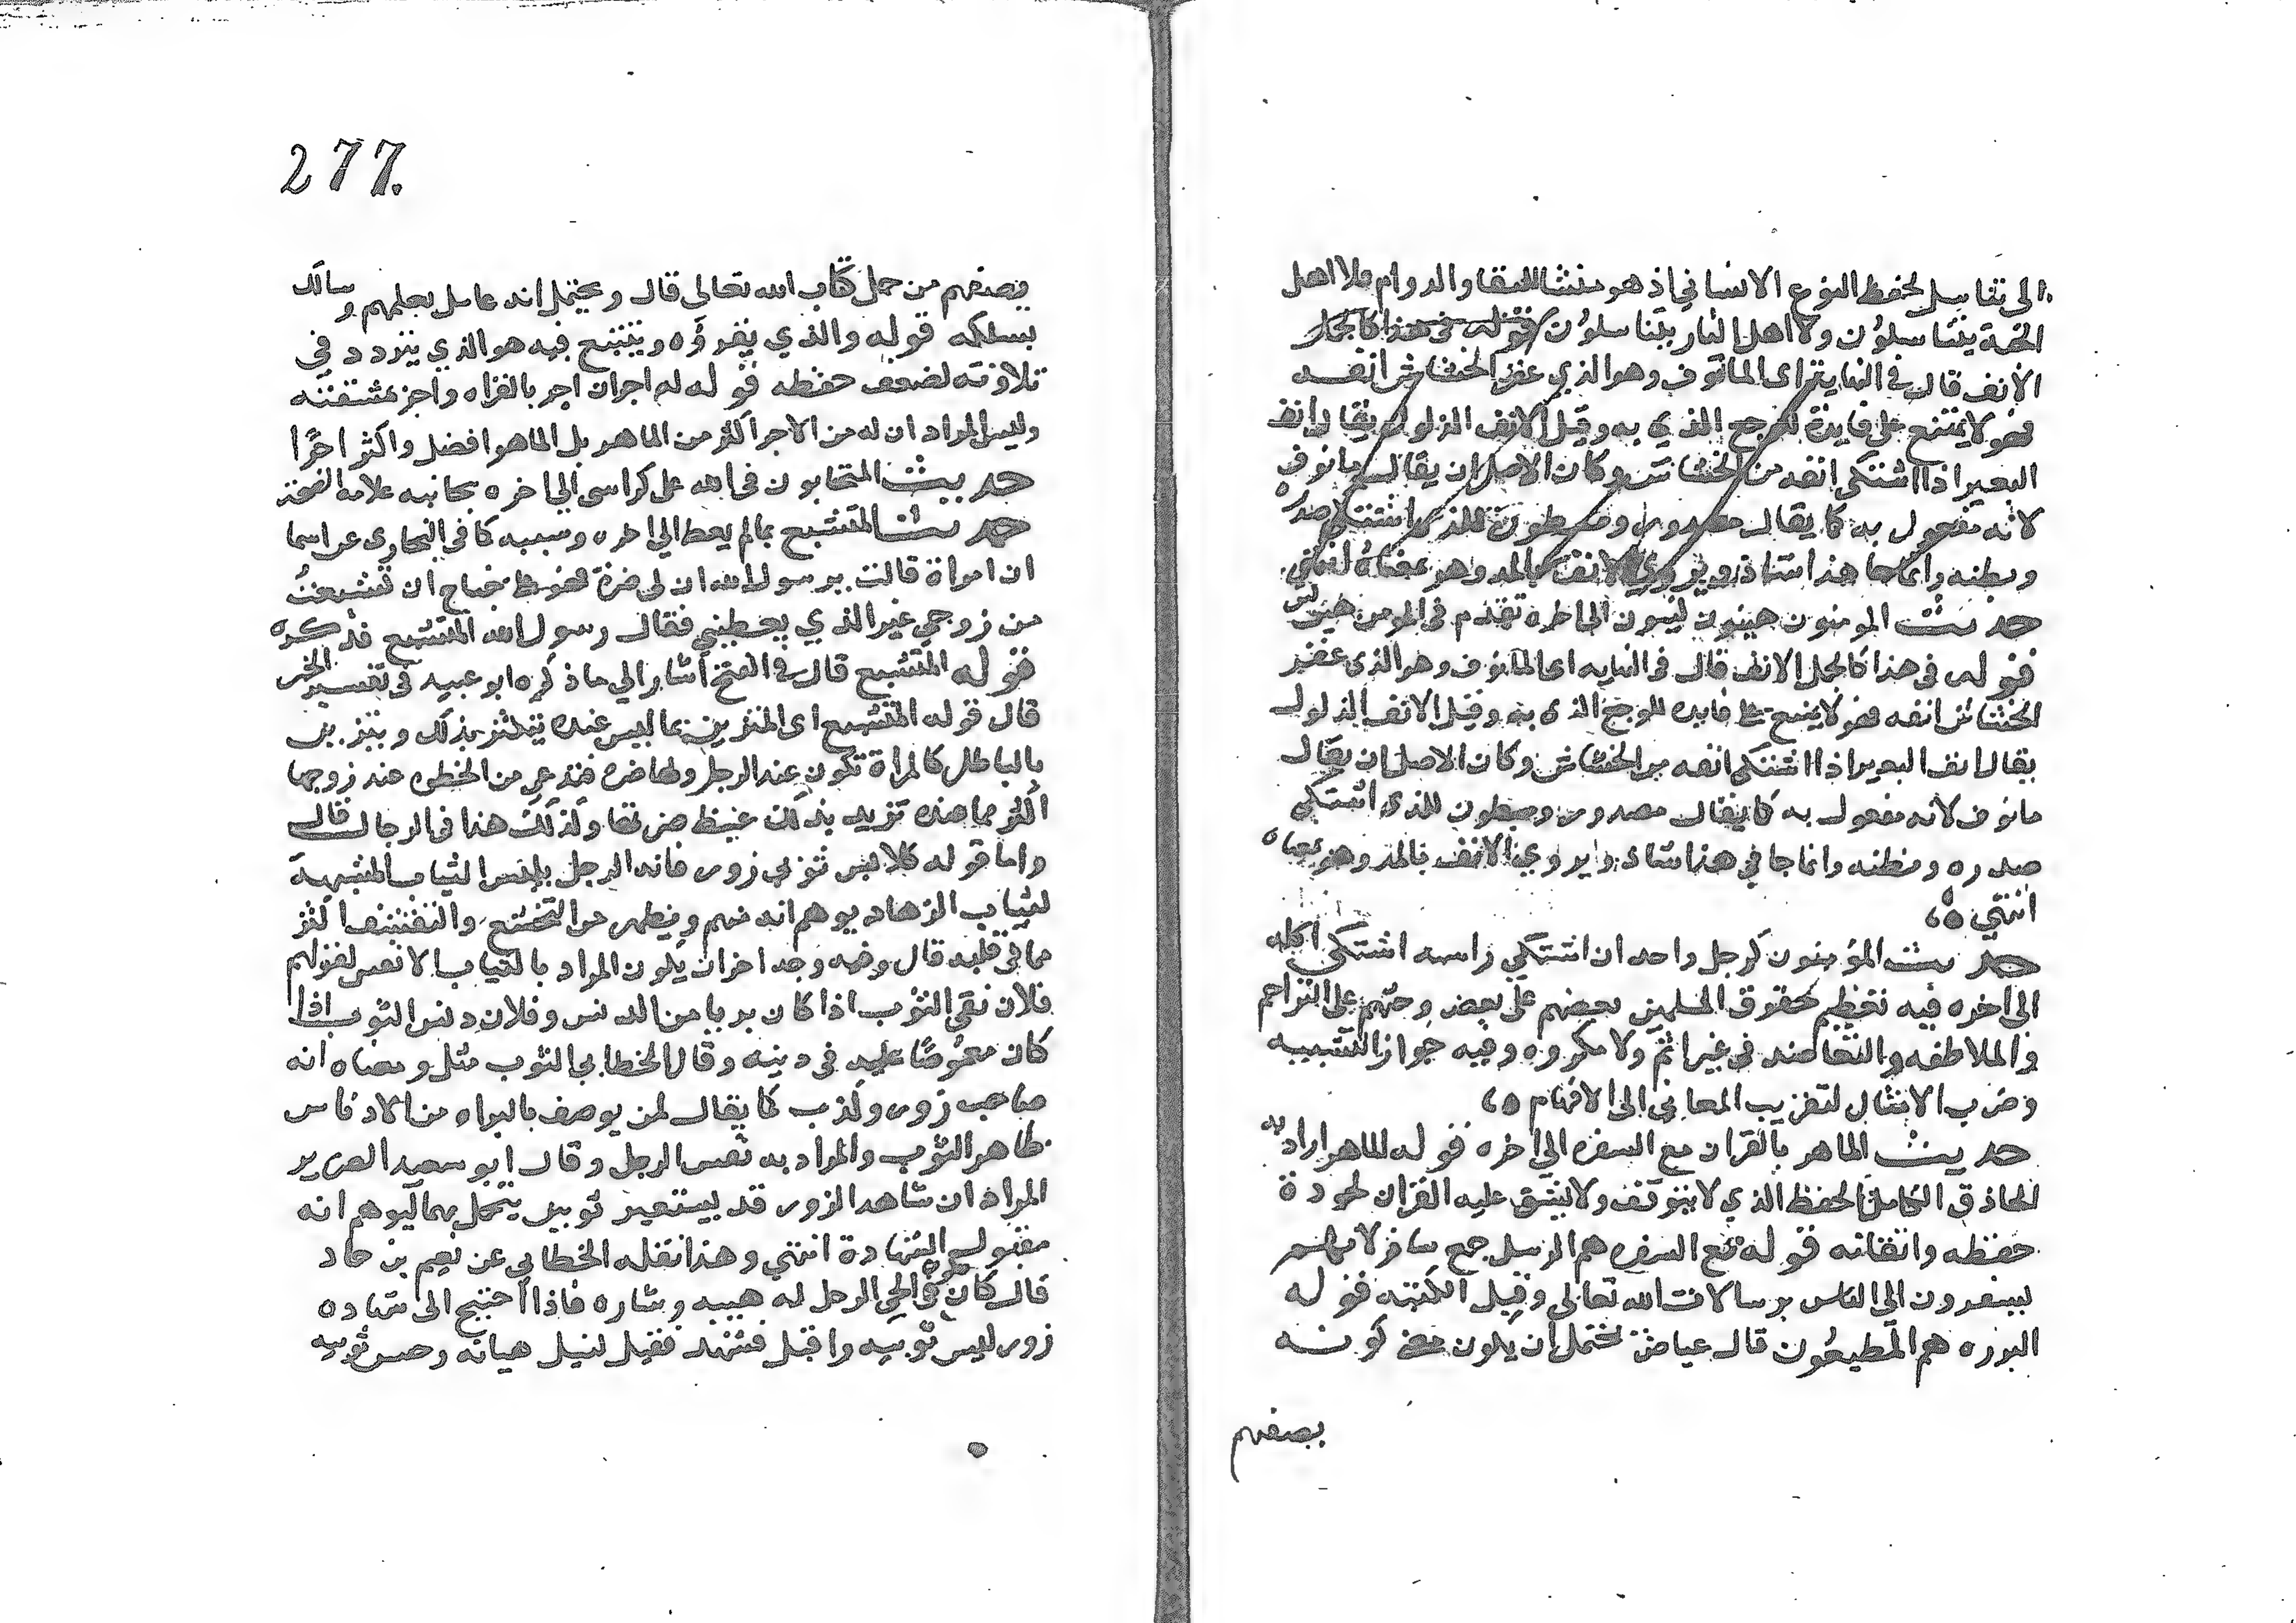 الى تناسل لحفظ النوع الانساني اذ هو منشا للبقا والدوام فلا اهل
الجنة يتناسلون ولا اهل النار يتناسلون قوله في هذا كالجمل
الانف قال في النهاية اى المانوف وهو الذي عقر الخشاش انفه
فهو لا يمتنع على قايده للوجع الذي به وقيل الانف الذلول يقال انف
البعير اذا اشتكى انفه من الخشاش وكان الاصل ان يقال مانوف
لانه مفعول به كما يقال مصدور ومبطون للذي اشتكى صدره
وبطنه وانما جا هذا شاذ ويروي الانف بالمد وهو بمعناه انتهى
حديث المومنون هينون لينون الى اخره تقدم في المومن هين لين
قوله في هذا كالجمل الانف قال في النهايه اى المانوف وهو الذى عقر
الخشاش انفه فهو لا يمتنع على قايده للوجع الذى به وقيل الانف الذلول
يقال انف البعير اذا اشتكى انفه من الخشاش وكان الاصل ان يقال
مانوف لانه مفعول به كما يقال مصدور ومبطون للذى اشتكى
صدره وبطنه وانما جا في هذا شاذ ويروي الانف بالمد وهو بمعناه
انتهي ٥
حديث المؤمنون كرجل واحد ان اشتكي راسه اشتكى كله
الى اخره فيه تعظيم حقوق المسلمين بعضهم على بعض وحثهم على التراحم
والملاطفه والتعاضد في غير اثم ولا مكروه وفيه جواز التشبيه
وضرب الامثال لتقريب المعاني الى الافهام ٥
حديث الماهر بالقران مع السفره الى اخره قوله الماهر اراد به
الحاذق الكامل الحفظ الذي لا يتوقف ولا يشق عليه القران لجودة
حفظه واتقانه قوله مع السفره هم الرسل جمع سافر لانهم
يسفرون الى الناس برسالات الله تعالى وقيل الكتبه قوله
البرره هم المطيعون قال عياض يحتمل ان يكون معنى كونه
بصفتهم
277.
بصفتهم من حمل كتاب الله تعالى قال ويحتمل انه عامل بعملهم وسالك
بسلكه قوله والذي يقرؤه ويتتعتع فيه هو الذي يتردد في
تلاوته لضعف حفظه قوله له اجران اجر بالقراه واجر بمشقته
وليس المراد ان له من الاجر اكثر من الماهر بل الماهر افضل واكثر اجرًا
حديث المتحابون في الله على كراسى الى اخره بجانبه علامة الصحة
حديث المتشبع بما لم يعط الى اخره وسببه كما في البخارى عن اسما
ان امراة قالت يرسول الله ان لى ضرة فهل على جناح ان تشبعت
من زوجي غير الذي يعطيني فقال رسول الله المتشبع فذكره
قوله المتشبع قال في الفتح اشار الي ما ذكره ابو عبيد في تفسير الخبر
قال قوله المتشبع اى المتزين بما ليس عنده يتكثر بذلك ويتزين
بالباطل كالمراة تكون عند الرجل ولها ضره فتدعي من الحظوه عند زوجها
اكثر مما عنده تريد بذلك غيظ ضرتها وكذلك هذا في الرجال قال
واما قوله كلابس ثوبي زور فانه الرجل يلبس الثياب المشبهة
لثياب الزهاد يوهم انه منهم ويظهر من التخشع والتقشف اكثر
مما في قلبه قال وفيه وجه اخر ان يكون المراد بالثياب الانفس لقولهم
فلان نقى الثوب اذا كان بريا من الدنس وفلان دنس الثوب اذا
كان مغموصًا عليه في دينه وقال الخطابى الثوب مثل ومعناه انه
صاحب زور وكذب كما يقال لمن يوصف بالبراه من الادناس
طاهر الثوب والمراد به نفس الرجل وقال ابو سعيد الضرير
المراد ان شاهد الزور قد يستعير ثوبين يتجمل بهما ليوهم انه
مقبول الشهادة انتهي وهذا نقله الخطابي عن نعيم بن حماد
قال كان يكون في الحي الرجل له هيبه وشاره فاذا احتيج الى شهاده
زور لبس ثوبيه واقبل فشهد فقبل لنبل هياته وحسن ثوبيه